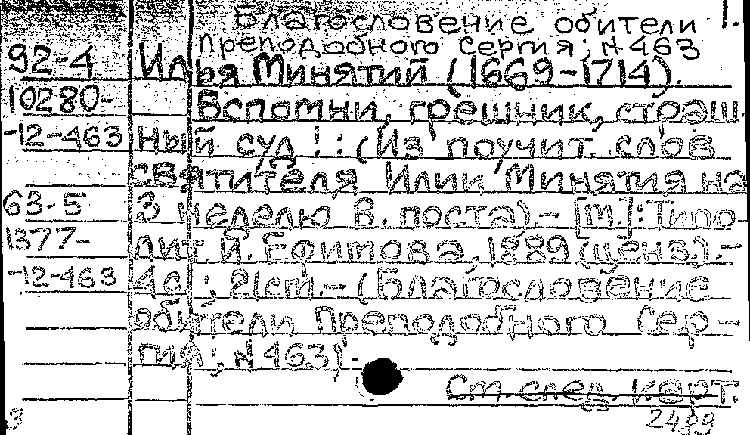 Благословение обители 1.
преподобного Сергия; N 463
92-4 Илья Минятий (1669-1714).
10280- Вспомни, грешник, страш
-12-463 ный суд! : (Из поучит. слов
святителя Илии Минятия на
63-5 3 неделю В. поста).- [М.]: Типо-
1377- лит И. Ефимова, 1889 (ценз.).-
-12-463 4с.; 21см.- (Благословение
обители Преподобного Сер-
гия; N 463).
См. след. карт.
2499